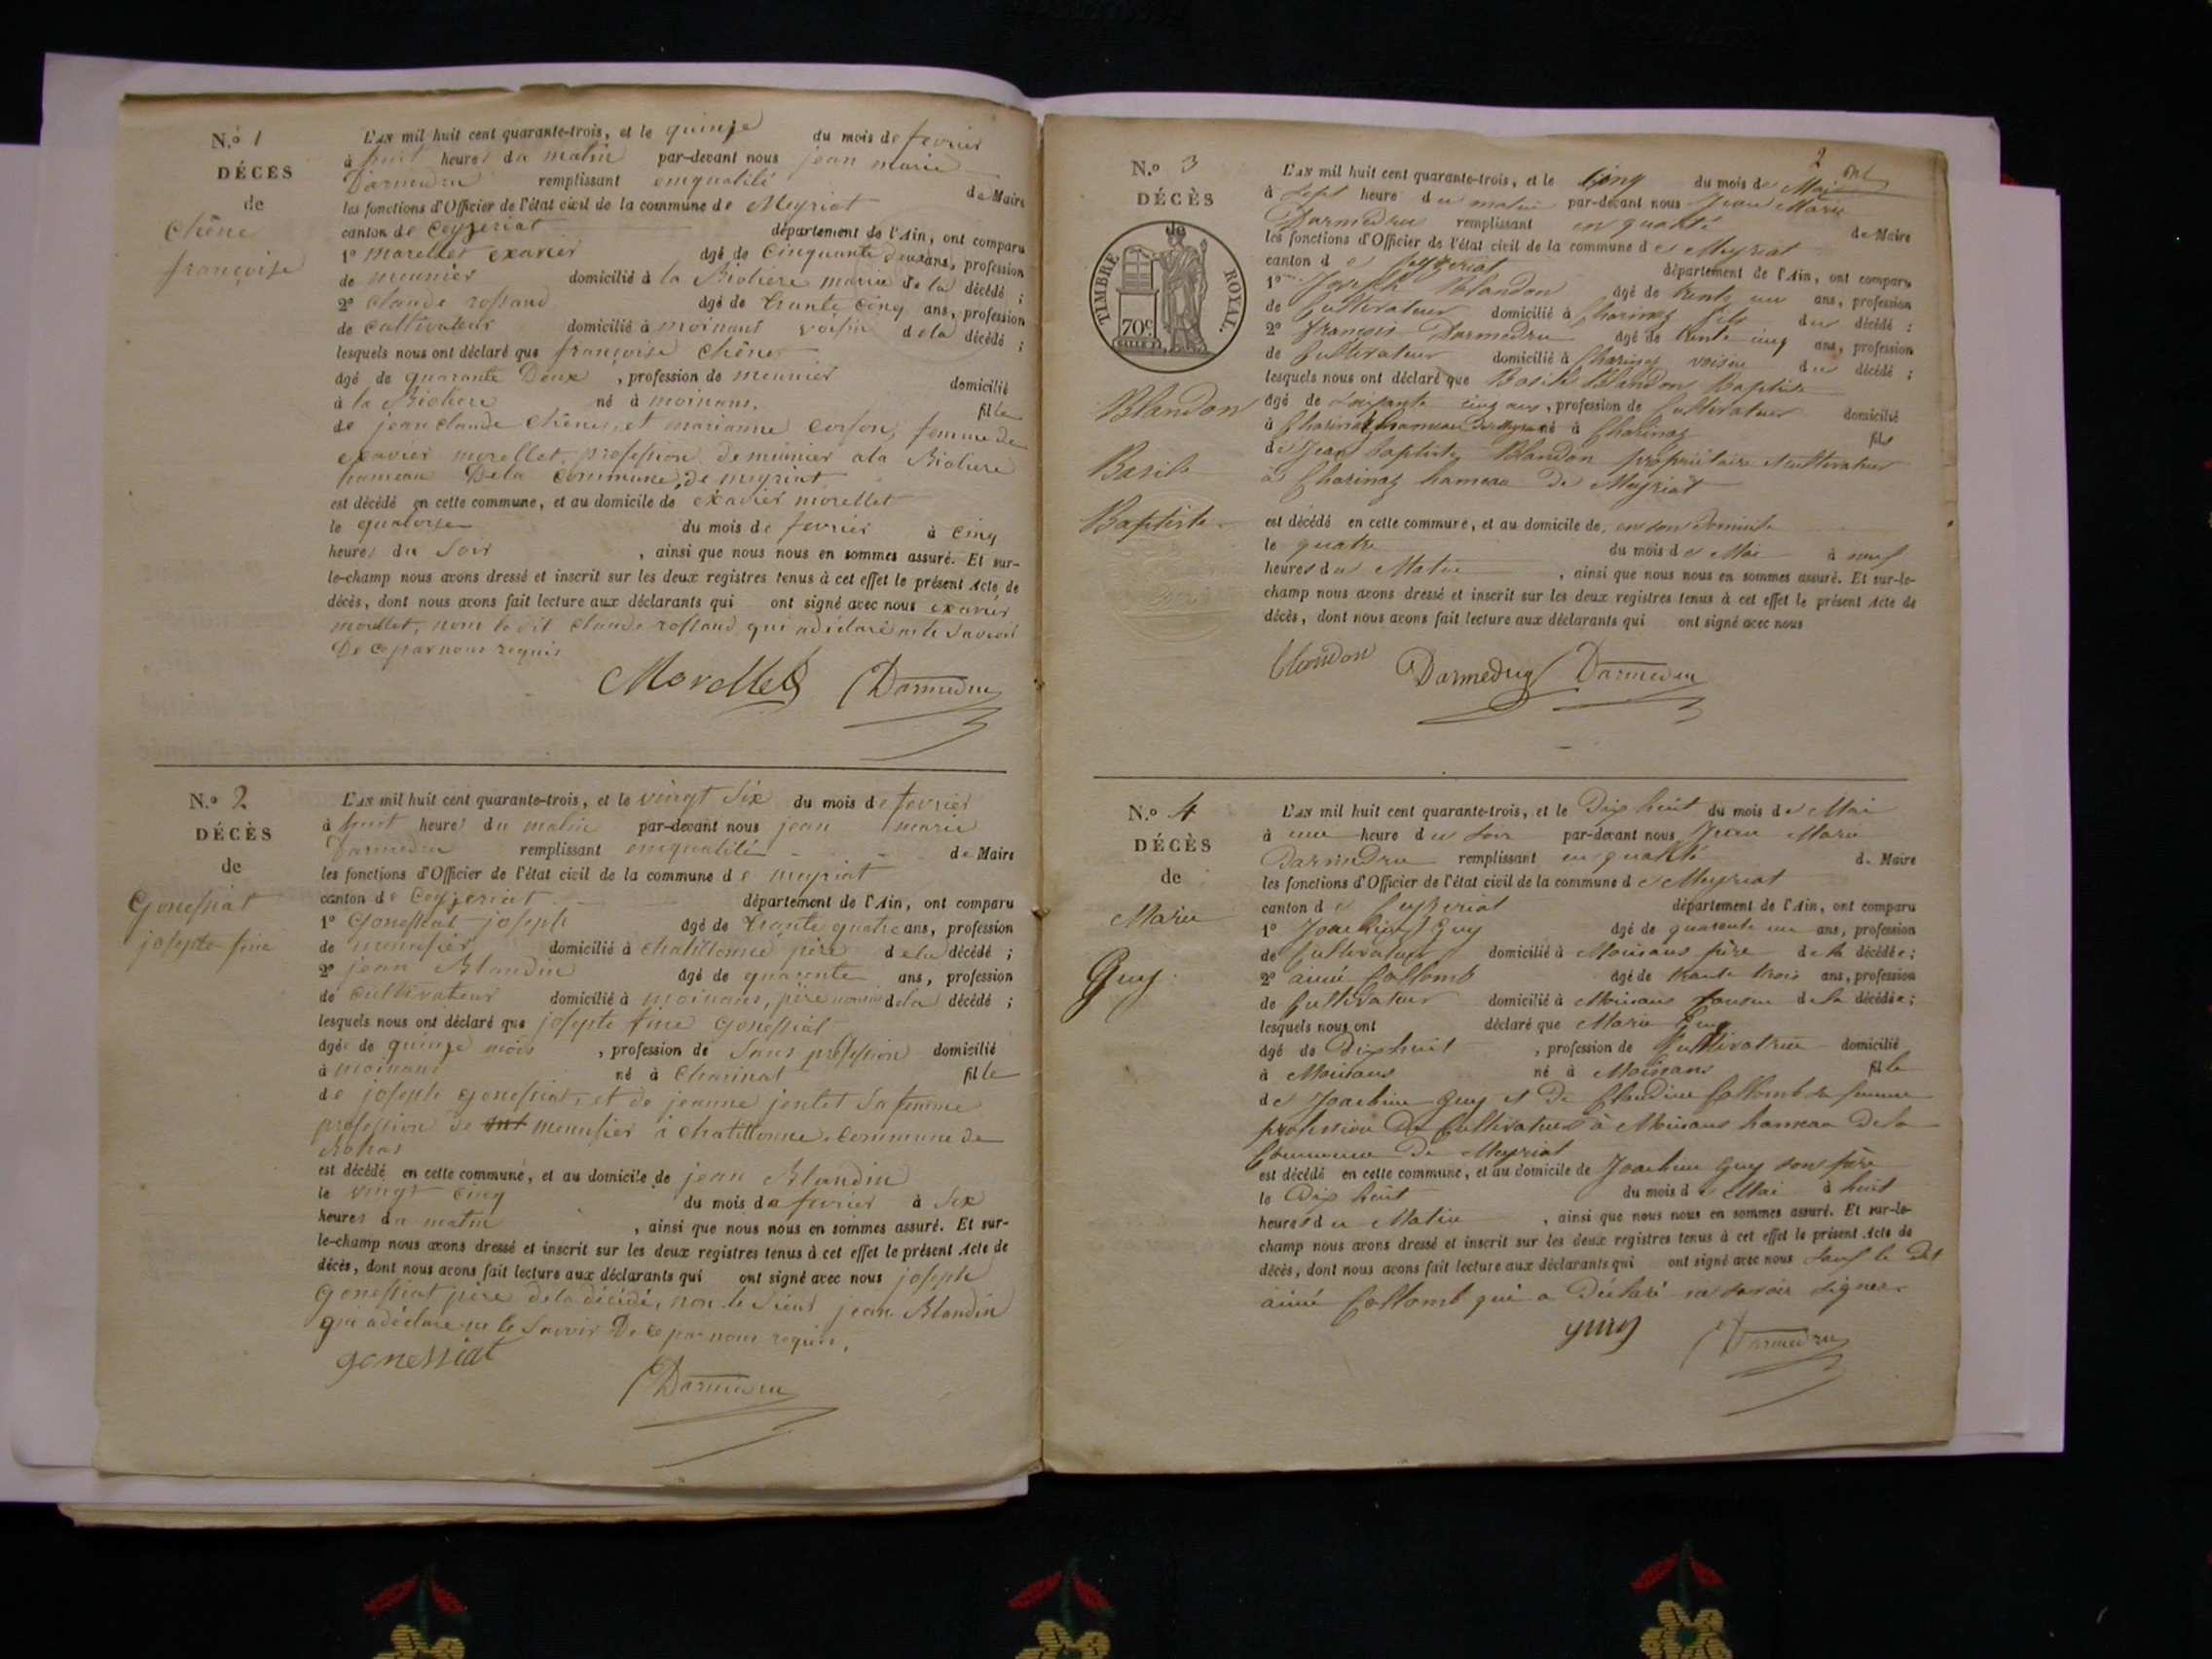 N.º 1
DÉCÈS
de
Chêne
françoise
L'AN mil huit cent quarante-trois, et le quinze du mois de fevrier
à huit heures du matin par-devant nous jean marie
Darmedru remplissant enqualité de Maire
les fonctions d'Officier de l'état civil de la commune de Meyriat
canton de Ceyzeriat département de l'Ain, ont comparu
1º morellet exavier âgé de Cinquante deux ans, profession
de meunier domicilié à la Bioliere marie de la décédé ;
2º Claude rossand âgé de trante Cinq ans, profession
de Cultivateur domicilié à moinans voisin de la décédé ;
lesquels nous ont déclaré que françoise Chêne
âgé de quarante Deux , profession de meunier domicilié
à la Bioliere né à moinans, fille
de jean claude Chêne, et marianne femme de
exavier morellet profession de meunier a la Bioliere
hameau De la Commune de meyriat
est décédé en cette commune, et au domicile de exavier morellet
le quatorze du mois de fevrier à Cinq
heures du Soir , ainsi que nous nous en sommes assuré. Et sur-
le-champ nous avons dressé et inscrit sur les deux registres tenus à cet effet le présent Acte de
décès, dont nous avons fait lecture aux déclarants qui ont signé avec nous exavier
morellet, non le dit Claude rossand qui a déclaré ne le Savoir
De ce par nous requis
Morellet Darmedru
N.º 2
DÉCÈS
de
Gonessiat
josepte fine
L'AN mil huit cent quarante-trois, et le vingt Six du mois de fevrier
à huit heures du matin par-devant nous jean marie
Darmedru remplissant enqualité de Maire
les fonctions d'Officier de l'état civil de la commune de meyriat
canton de Ceyzeriat département de l'Ain, ont comparu
1º Gonessiat joseph âgé de trante quatre ans, profession
de menusier domicilié à Chatillonne père de la décédé ;
2º jean Blandin âgé de quarente ans, profession
de Cultivateur domicilié à moinans, père de la décédé ;
lesquels nous ont déclaré que josepte fine Gonessiat
âgé de quinze mois , profession de Sans profession domicilié
à moinans né à Charinat fille
de joseph gonessiat, et de jeanne jentet Sa femme
profession de menusier a Chatillonne Commune de
Rohas
est décédé en cette commune, et au domicile de jean Blandin
le vingt Cinq du mois de fevrier à Six
heures du matin , ainsi que nous nous en sommes assuré. Et sur-
le-champ nous avons dressé et inscrit sur les deux registres tenus à cet effet le présent Acte de
décès, dont nous avons fait lecture aux déclarants qui ont signé avec nous joseph
Gonessiat père de la décédé, non le Sieur jean Blandin
qui a déclaré ne le Savoir De ce par nous requis,
gonessiat
Darmedru
2
N.º 3
DÉCÈS
TIMBRE ROYAL.
70c
Blandon
Basile
Baptiste
L'AN mil huit cent quarante-trois, et le Cinq du mois de Mai
à Sept heure du matin par-devant nous Jean Marie
Darmedru remplissant en qualité de Maire
les fonctions d'Officier de l'état civil de la commune de Meyriat
canton de Ceyzeriat département de l'Ain, ont comparu
1º Joseph Blandon âgé de trente un ans, profession
de Cultivateur domicilié à Charinaz fils du décédé ;
2º françois Darmedru âgé de trente cinq ans, profession
de Cultivateur domicilié à Charinaz voisin du décédé ;
lesquels nous ont déclaré que Basile Blandon Baptiste
âgé de Soixante cinq ans, profession de Cultivateur domicilié
à Charinaz hameau de Meyriat né à Charinaz fils
de Jean Baptiste Blandon propriétaire Cultivateur
à Charinaz hameau De Meyriat
est décédé en cette commune, et au domicile de, en son Domicile
le quatre du mois de Mai à neuf
heures du Matin , ainsi que nous nous en sommes assuré. Et sur-le-
champ nous avons dressé et inscrit sur les deux registres tenus à cet effet le présent Acte de
décès, dont nous avons fait lecture aux déclarants qui ont signé avec nous
blondon Darmedru Darmedru
N.º 4
DÉCÈS
de
Marie
Guy
L'AN mil huit cent quarante-trois, et le Dix huit du mois de Mai
à une heure du soir par-devant nous Jean Marie
Darmedru remplissant en qualité de Maire
les fonctions d'Officier de l'état civil de la commune de Meyriat
canton de Ceyzeriat département de l'Ain, ont comparu
1º Joachim Guy âgé de quarente un ans, profession
de Cultivateur domicilié à Moinans père de la décédée ;
2º aimé Collomb âgé de trante trois ans, profession
de Cultivateur domicilié à Moinans Cousin de la décédée ;
lesquels nous ont déclaré que Marie Guy
âgé de Dixhuit , profession de Cultivatrice domicilié
à Moinans né à Moinans fille
de Joachim Guy et De Claudine Collomb sa femme
profession De Cultivateurs à Moinans hameau de la
Commune De Meyriat
est décédé en cette commune, et au domicile de Joachim Guy son père
le Dix huit du mois de Mai à huit
heures du Matin , ainsi que nous nous en sommes assuré. Et sur-le-
champ nous avons dressé et inscrit sur les deux registres tenus à cet effet le présent Acte de
décès, dont nous avons fait lecture aux déclarants qui ont signé avec nous Sauf le Dit
aimé Collomb qui a Déclaré ne savoir signer
guy Darmedru